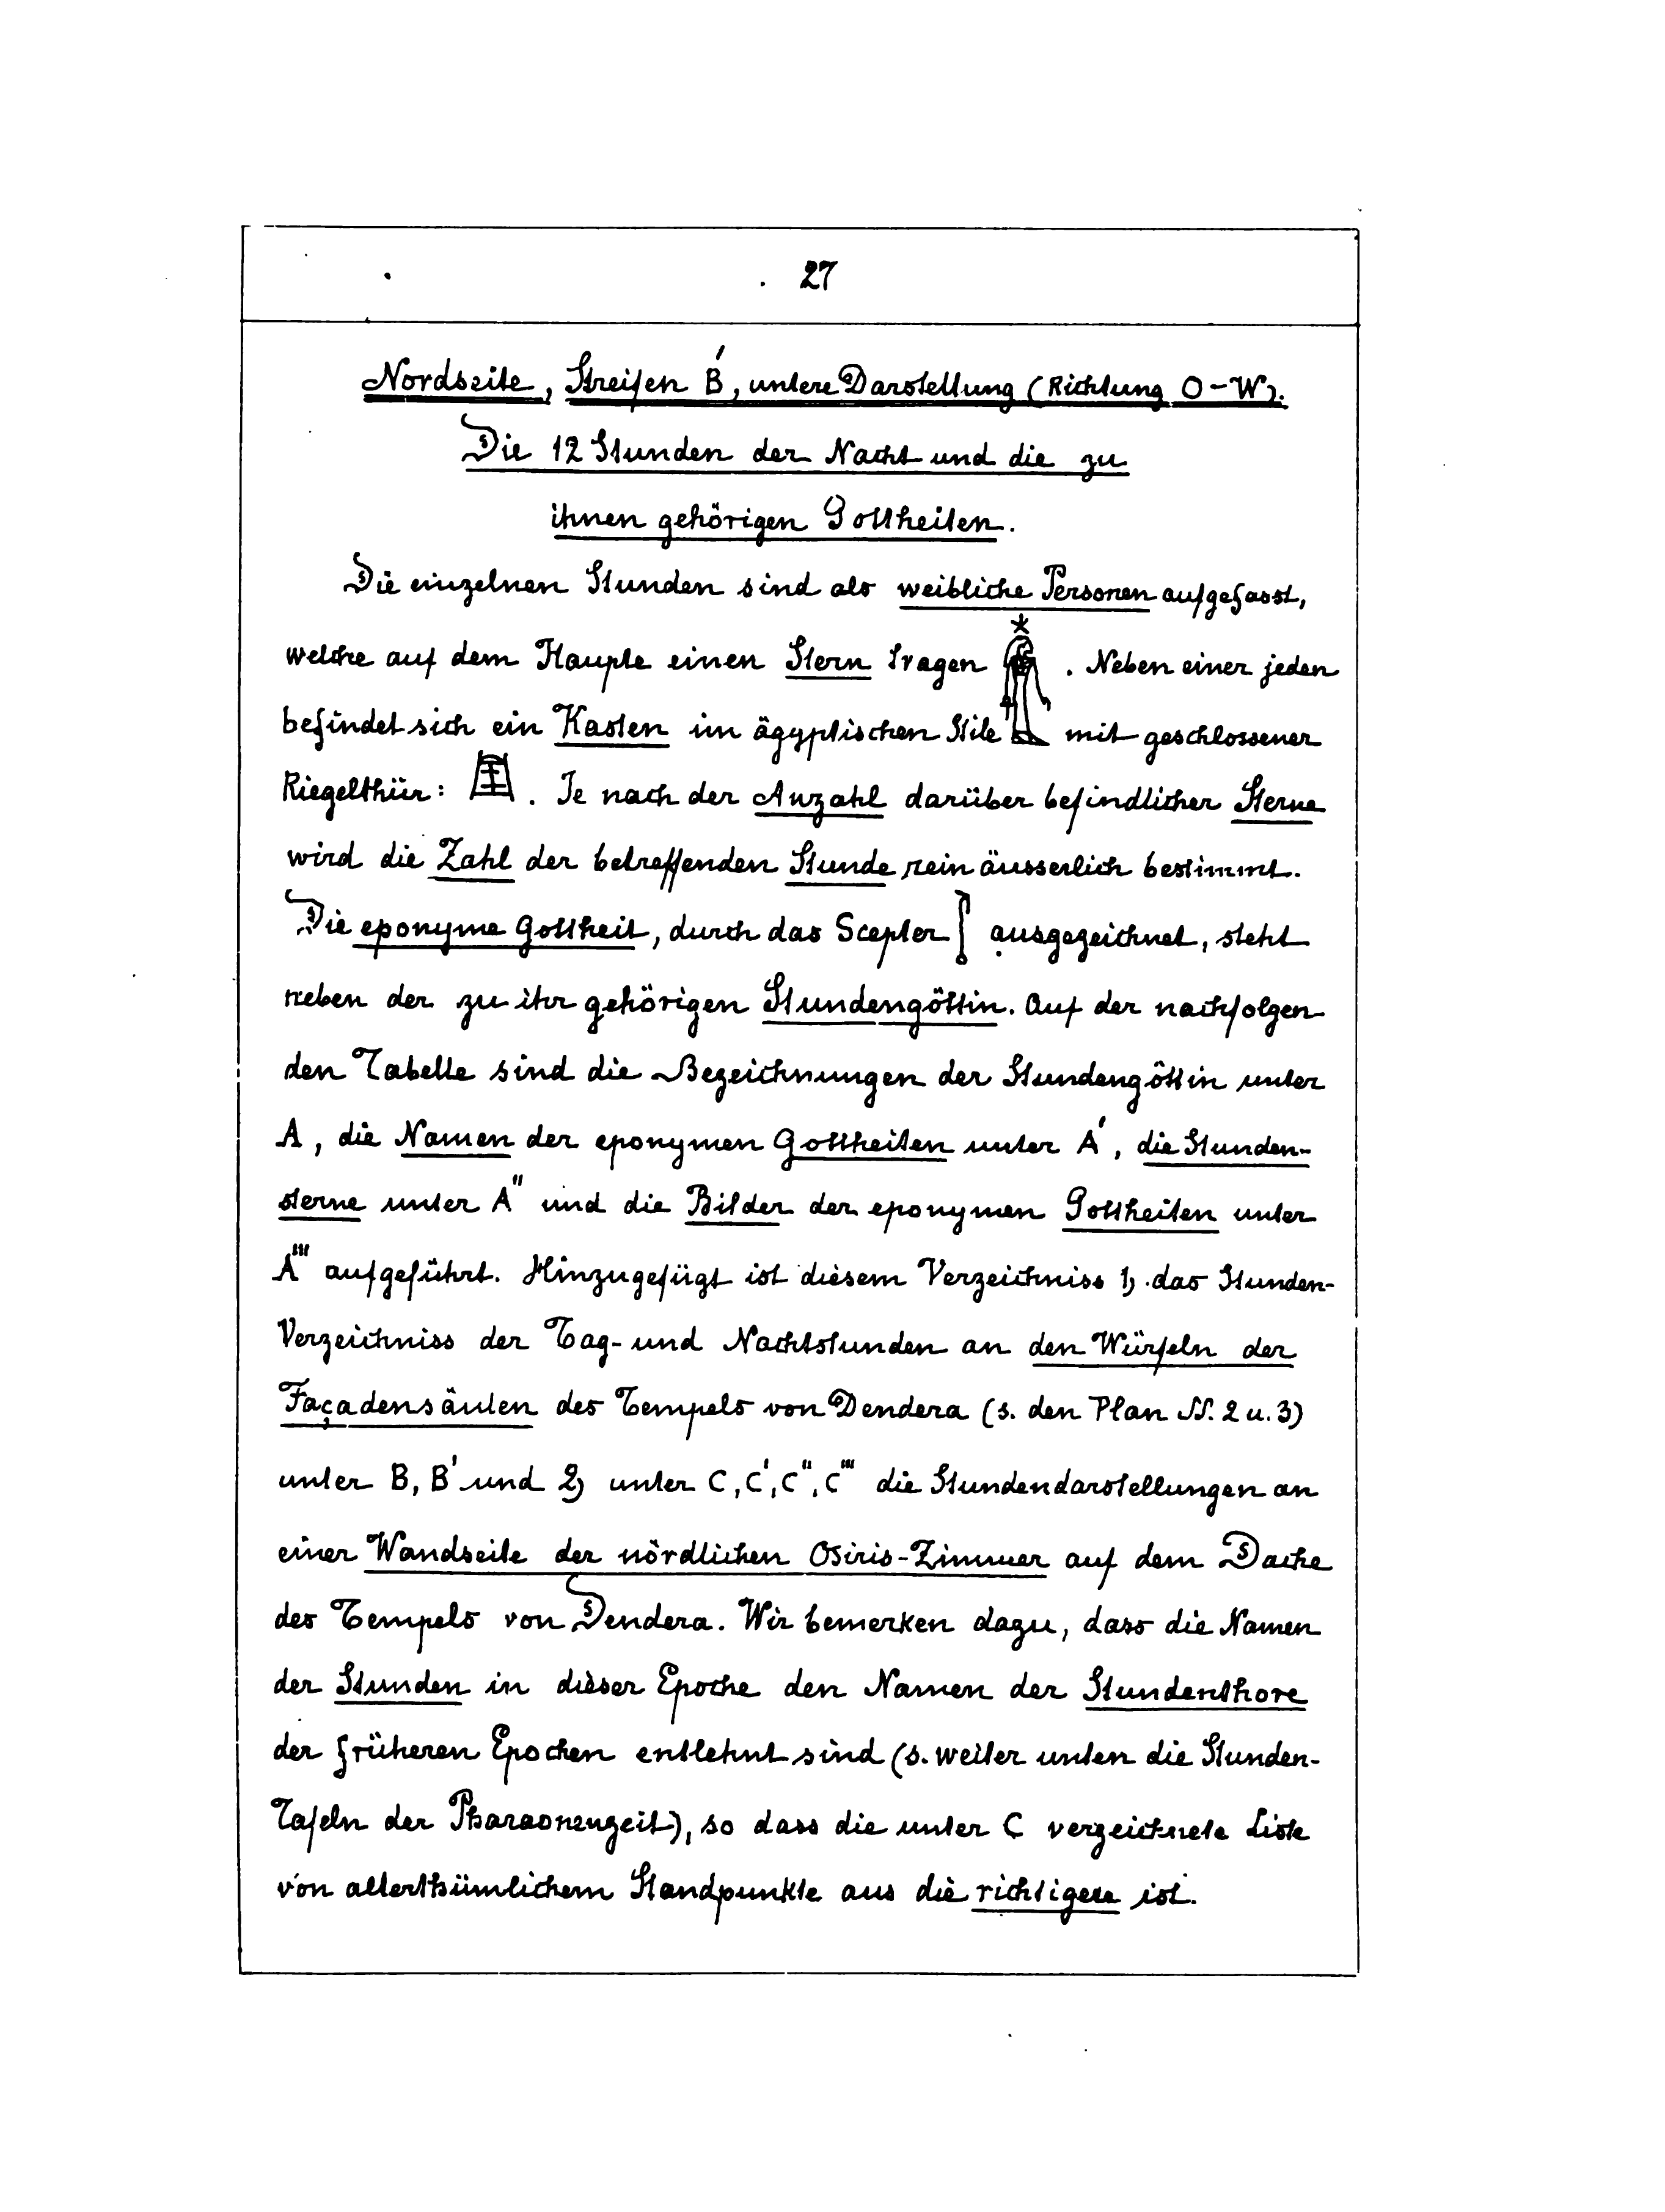 27
Nordseite, Streifen B', untere Darstellung (Richtung O-W).
Die 12 Stunden der Nacht und die zu
ihnen gehörigen Gottheiten.
Die einzelnen Stunden sind als weibliche Personen aufgefasst,
welche auf dem Haupte einen Stern tragen . Neben einer jeden
befindet sich ein Kasten im ägyptischen Stile mit geschlossener
Riegelthür: . Je nach der Anzahl darüber befindlicher Sterne
wird die Zahl der betreffenden Stunde rein äusserlich bestimmt.
Die eponyme Gottheit, durch das Scepter ausgezeichnet, steht
neben der zu ihr gehörigen Stundengöttin. Auf der nachfolgen
den Tabelle sind die Bezeichnungen der Stundengöttin unter
A, die Namen der eponymen Gottheiten unter A', die Stunden-
sterne unter A" und die Bilder der eponymen Gottheiten unter
A''' aufgeführt. Hinzugefügt ist diesem Verzeichniss 1) das Stunden-
Verzeichniss der Tag- und Nachtstunden an den Würfeln der
Façadensäulen des Tempels von Dendera (s. den Plan NN. 2 u. 3)
unter B, B' und 2) unter C, C', C", C''' die Stundendarstellungen an
einer Wandseite der nördlichen Osiris-Zimmer auf dem Dache
des Tempels von Dendera. Wir bemerken dazu, dass die Namen
der Stunden in dieser Epoche den Namen der Stundenthore
der früheren Epochen entlehnt sind (s. weiter unten die Stunden-
Tafeln der Pharaonenzeit), so dass die unter C verzeichnete Liste
von alterthümlichem Standpunkte aus die richtigere ist.